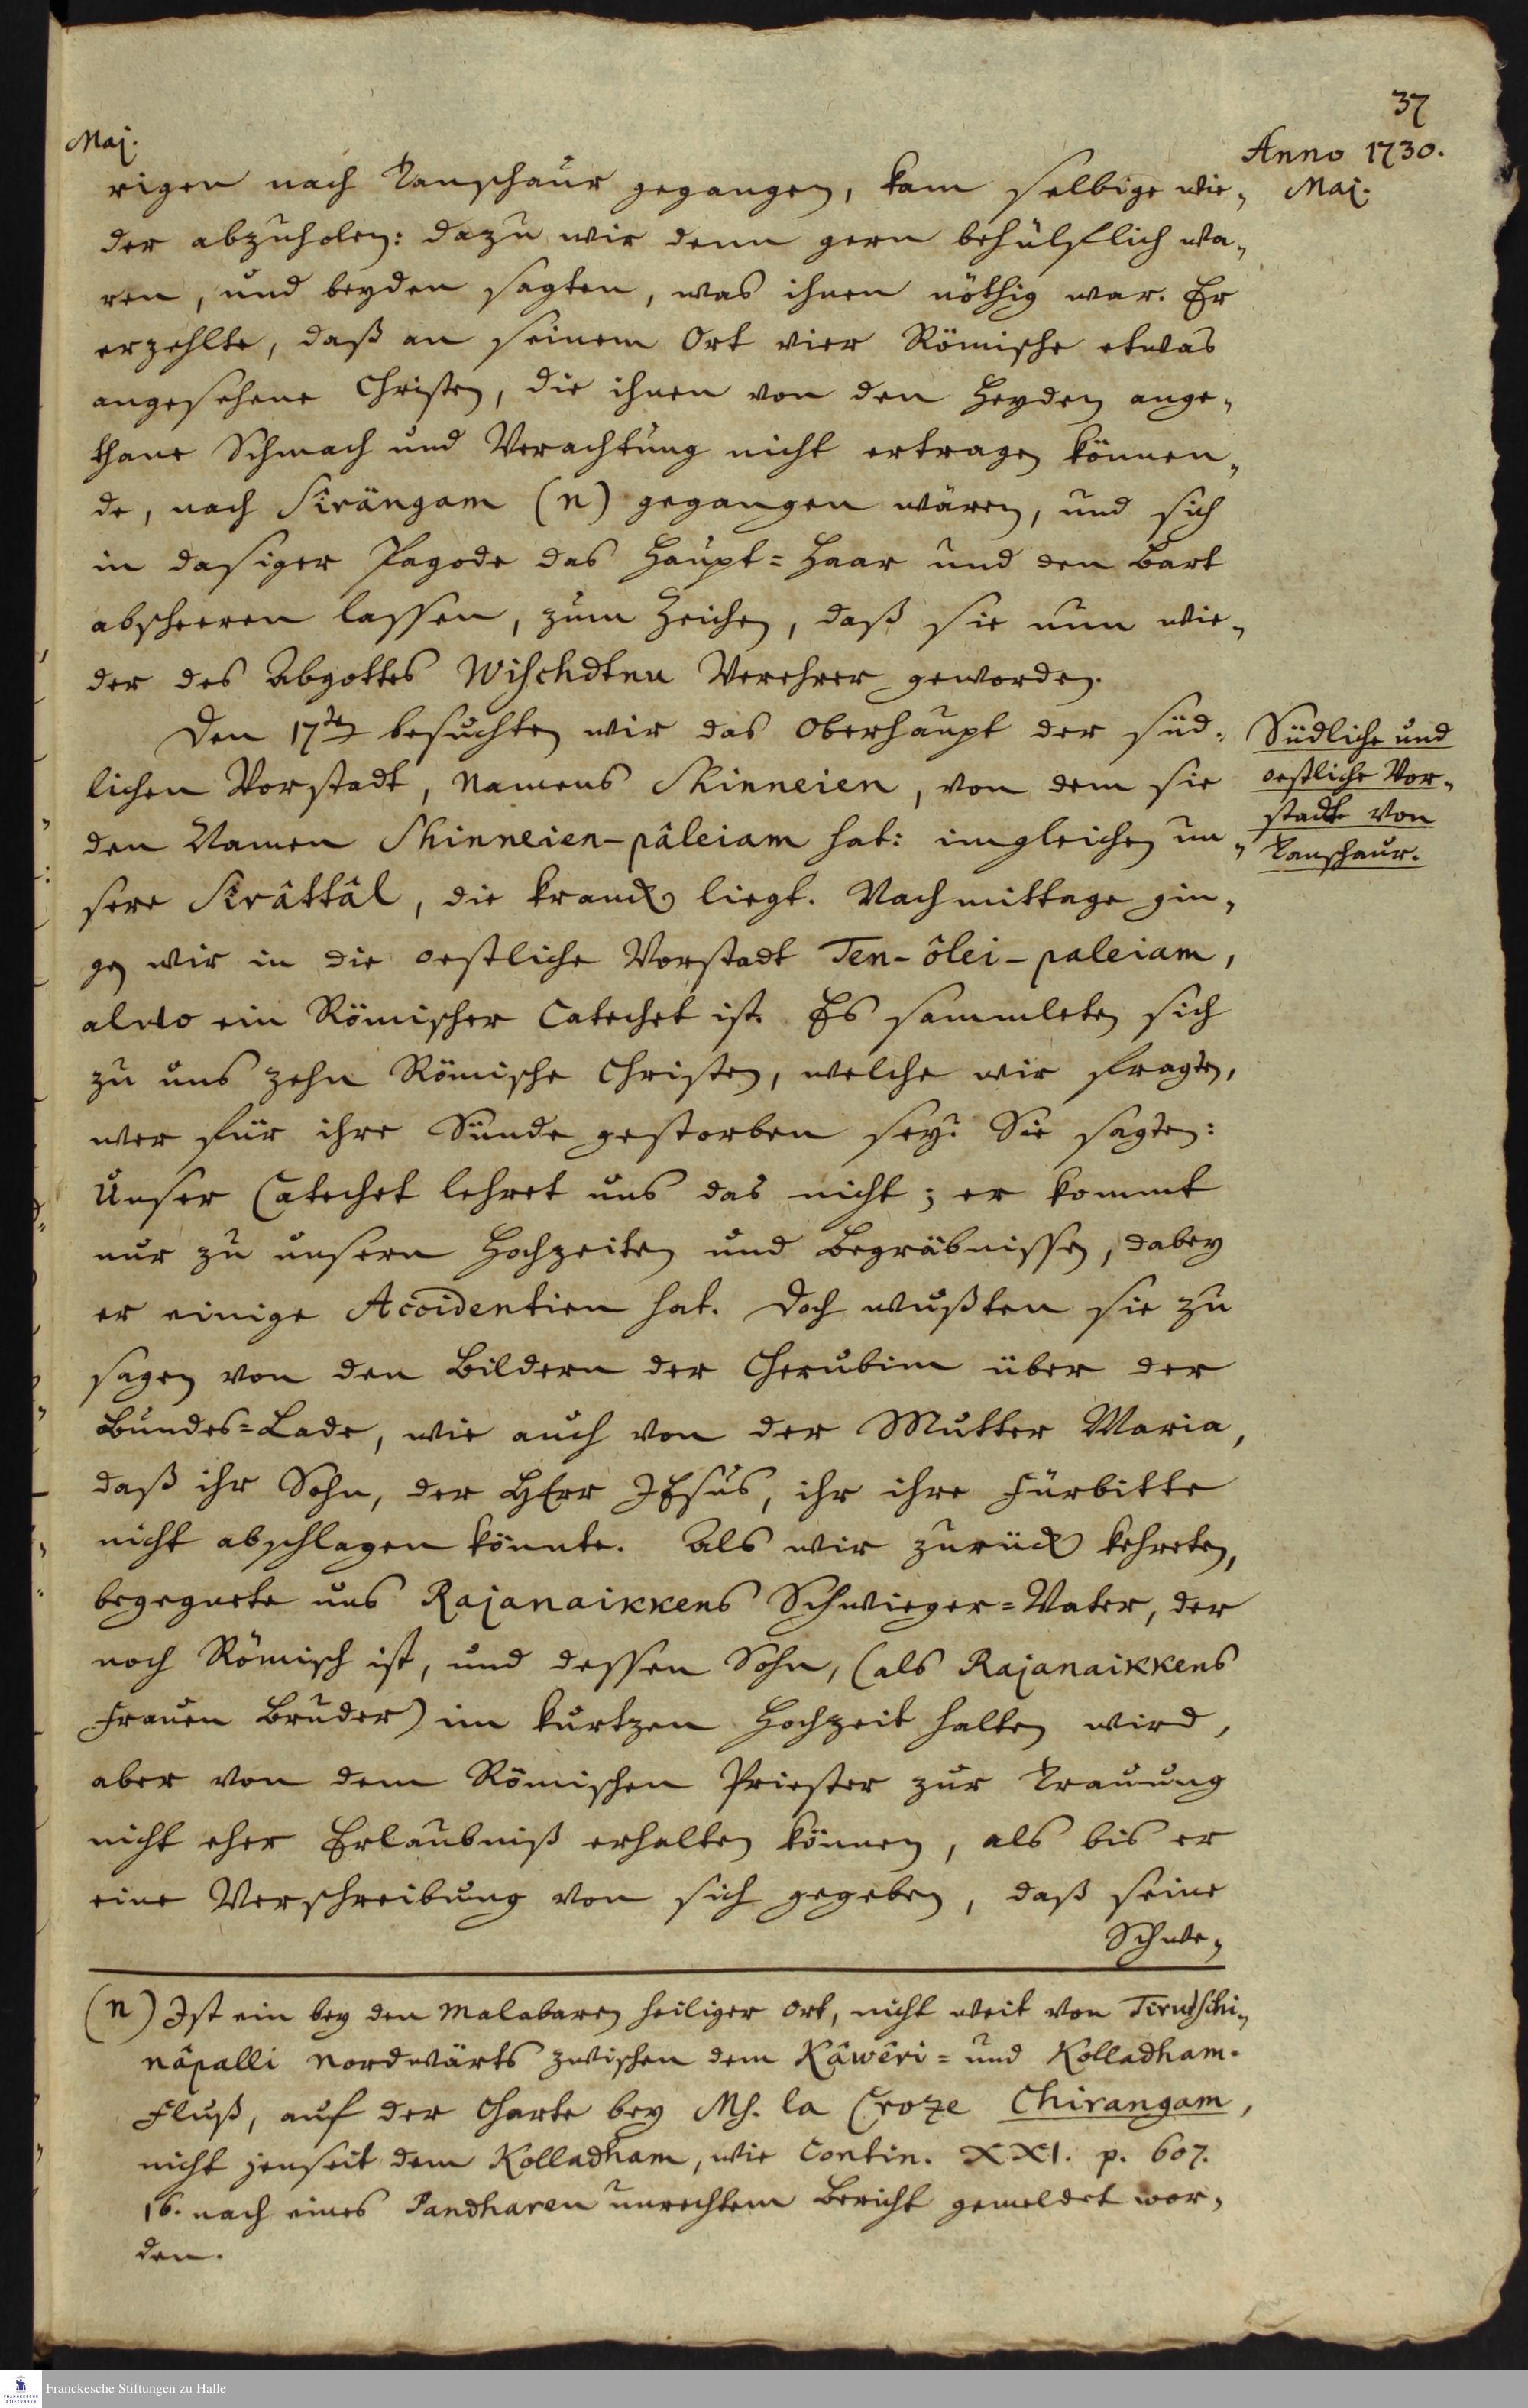 37
Maj.
Anno 1730.
Maj.
rigen nach Tanschaur gegangen, kam selbige wie„
der abzuholen: dazu wir denn gern behülflich wa„
ren, und beyden sagten, was ihnen nöthig war. Er
erzehlte, daß an seinem Ort vier Römische etwas
angesehene Christen, die ihnen von den Heyden ange„
thane Schmach und Verachtung nicht ertragen können„
de, nach Sirängam (n) gegangen wären, und sich
in dasiger Pagode das Haupt=Haar und den Bart
abscheeren lassen, zum Zeichen, daß sie nun wie„
der des Abgottes Wischdtnu Verehrer geworden.
Den 17ten besuchten wir das Oberhaupt der süd„
lichen Vorstadt, Namens Shinneien, von dem sie
den Namen Shinneien-pâleiam hat: imgleichen un„
sere Sirâttâl, die kranck liegt. Nachmittage gin„
gen wir in die oestliche Vorstadt Ten-ôlei-paleiam,
alwo ein Römischer Catechet ist. Es sammleten sich
zu uns zehn Römische Christen, welche wir fragten,
wer für ihre Sünde gestorben sey? Sie sagten:
Unser Catechet lehret uns das nicht; er kommt
nur zu unsern Hochzeiten und Begräbnissen, dabey
er einige Accidentien hat. Doch wußten sie zu
sagen von den Bildern der Cherubim über der
Bundes=Lade, wie auch von der Mutter Maria,
daß ihr Sohn, der HErr JEsus, ihr ihre Fürbitte
nicht abschlagen könnte. Als wir zurück kehreten,
begegnete uns Rajanaikkens Schwieger=Vater, der
noch Römisch ist, und dessen Sohn, (als Rajanaikkens
Frauen Bruder) im kurtzen Hochzeit halten wird,
aber von dem Römischen Priester zur Trauung
nicht eher Erlaubniß erhalten können, als bis er
eine Verschreibung von sich gegeben, daß seine
Schwe„
Südliche und
oestliche Vor„
stadt von
Tanschaur.
(n) Ist ein bey den Malabaren heiliger Ort, nicht weit von Tirutschi„
nâpalli nordwärts zwischen dem Kâwêri= und Kolladham-
Fluß, auf der Charte bey Ms. la Croze Chirangam,
nicht jenseit dem Kolladham, wie Contin. XXI. p. 607.
16. nach eines Pandharen unrechtem Bericht gemeldet wor„
den.
Franckesche Stiftungen zu Halle